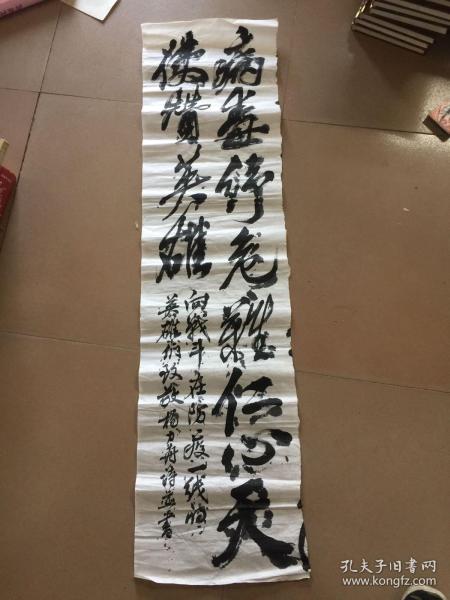 病毒肆危难仁心天
使赞英雄
向战斗在防疫一线的
英雄们致敬杨力舟诗并书
孔夫子旧书网
www.kongfz.com